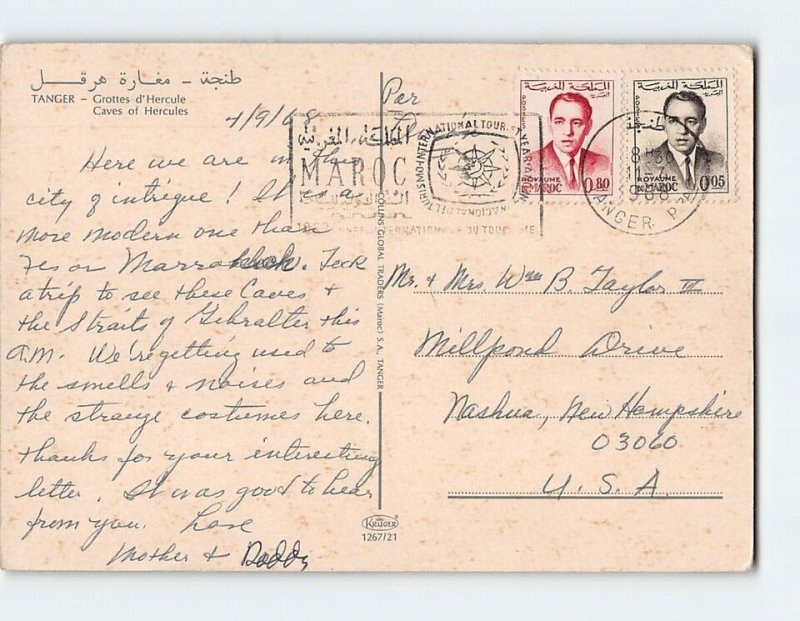 طنجة - مغارة هرقل
TANGER - Grottes d'Hercule
Caves of Hercules
4/9/68
Here we are in the
city of intrigue! It is a
more modern one than
Fes or Marrakech. Took
a trip to see these Caves &
the Straits of Gibralter this
A.M. We're getting used to
the smells & noises and
the strange costumes here.
Thanks for your interesting
letter. It was good to hear
from you. Love
Mother & Daddy
COLLINS GLOBAL TRADERS (Maroc) S.A., TANGER
KRUGER
1267/21
Par
المملكة المغربية
MAROC
INTERNATIONAL TOURIST YEAR
1967 INTERNATIONALE DU TOURISME
المملكة المغربية
POSTES
ROYAUME
DU MAROC 0.80
المملكة المغربية
POSTES
ROYAUME
DU MAROC 0.05
طنجة
TANGER
Mr. & Mrs. Wm B. Taylor III
Millpond Drive
Nashua, New Hampshire
03060
U. S. A.